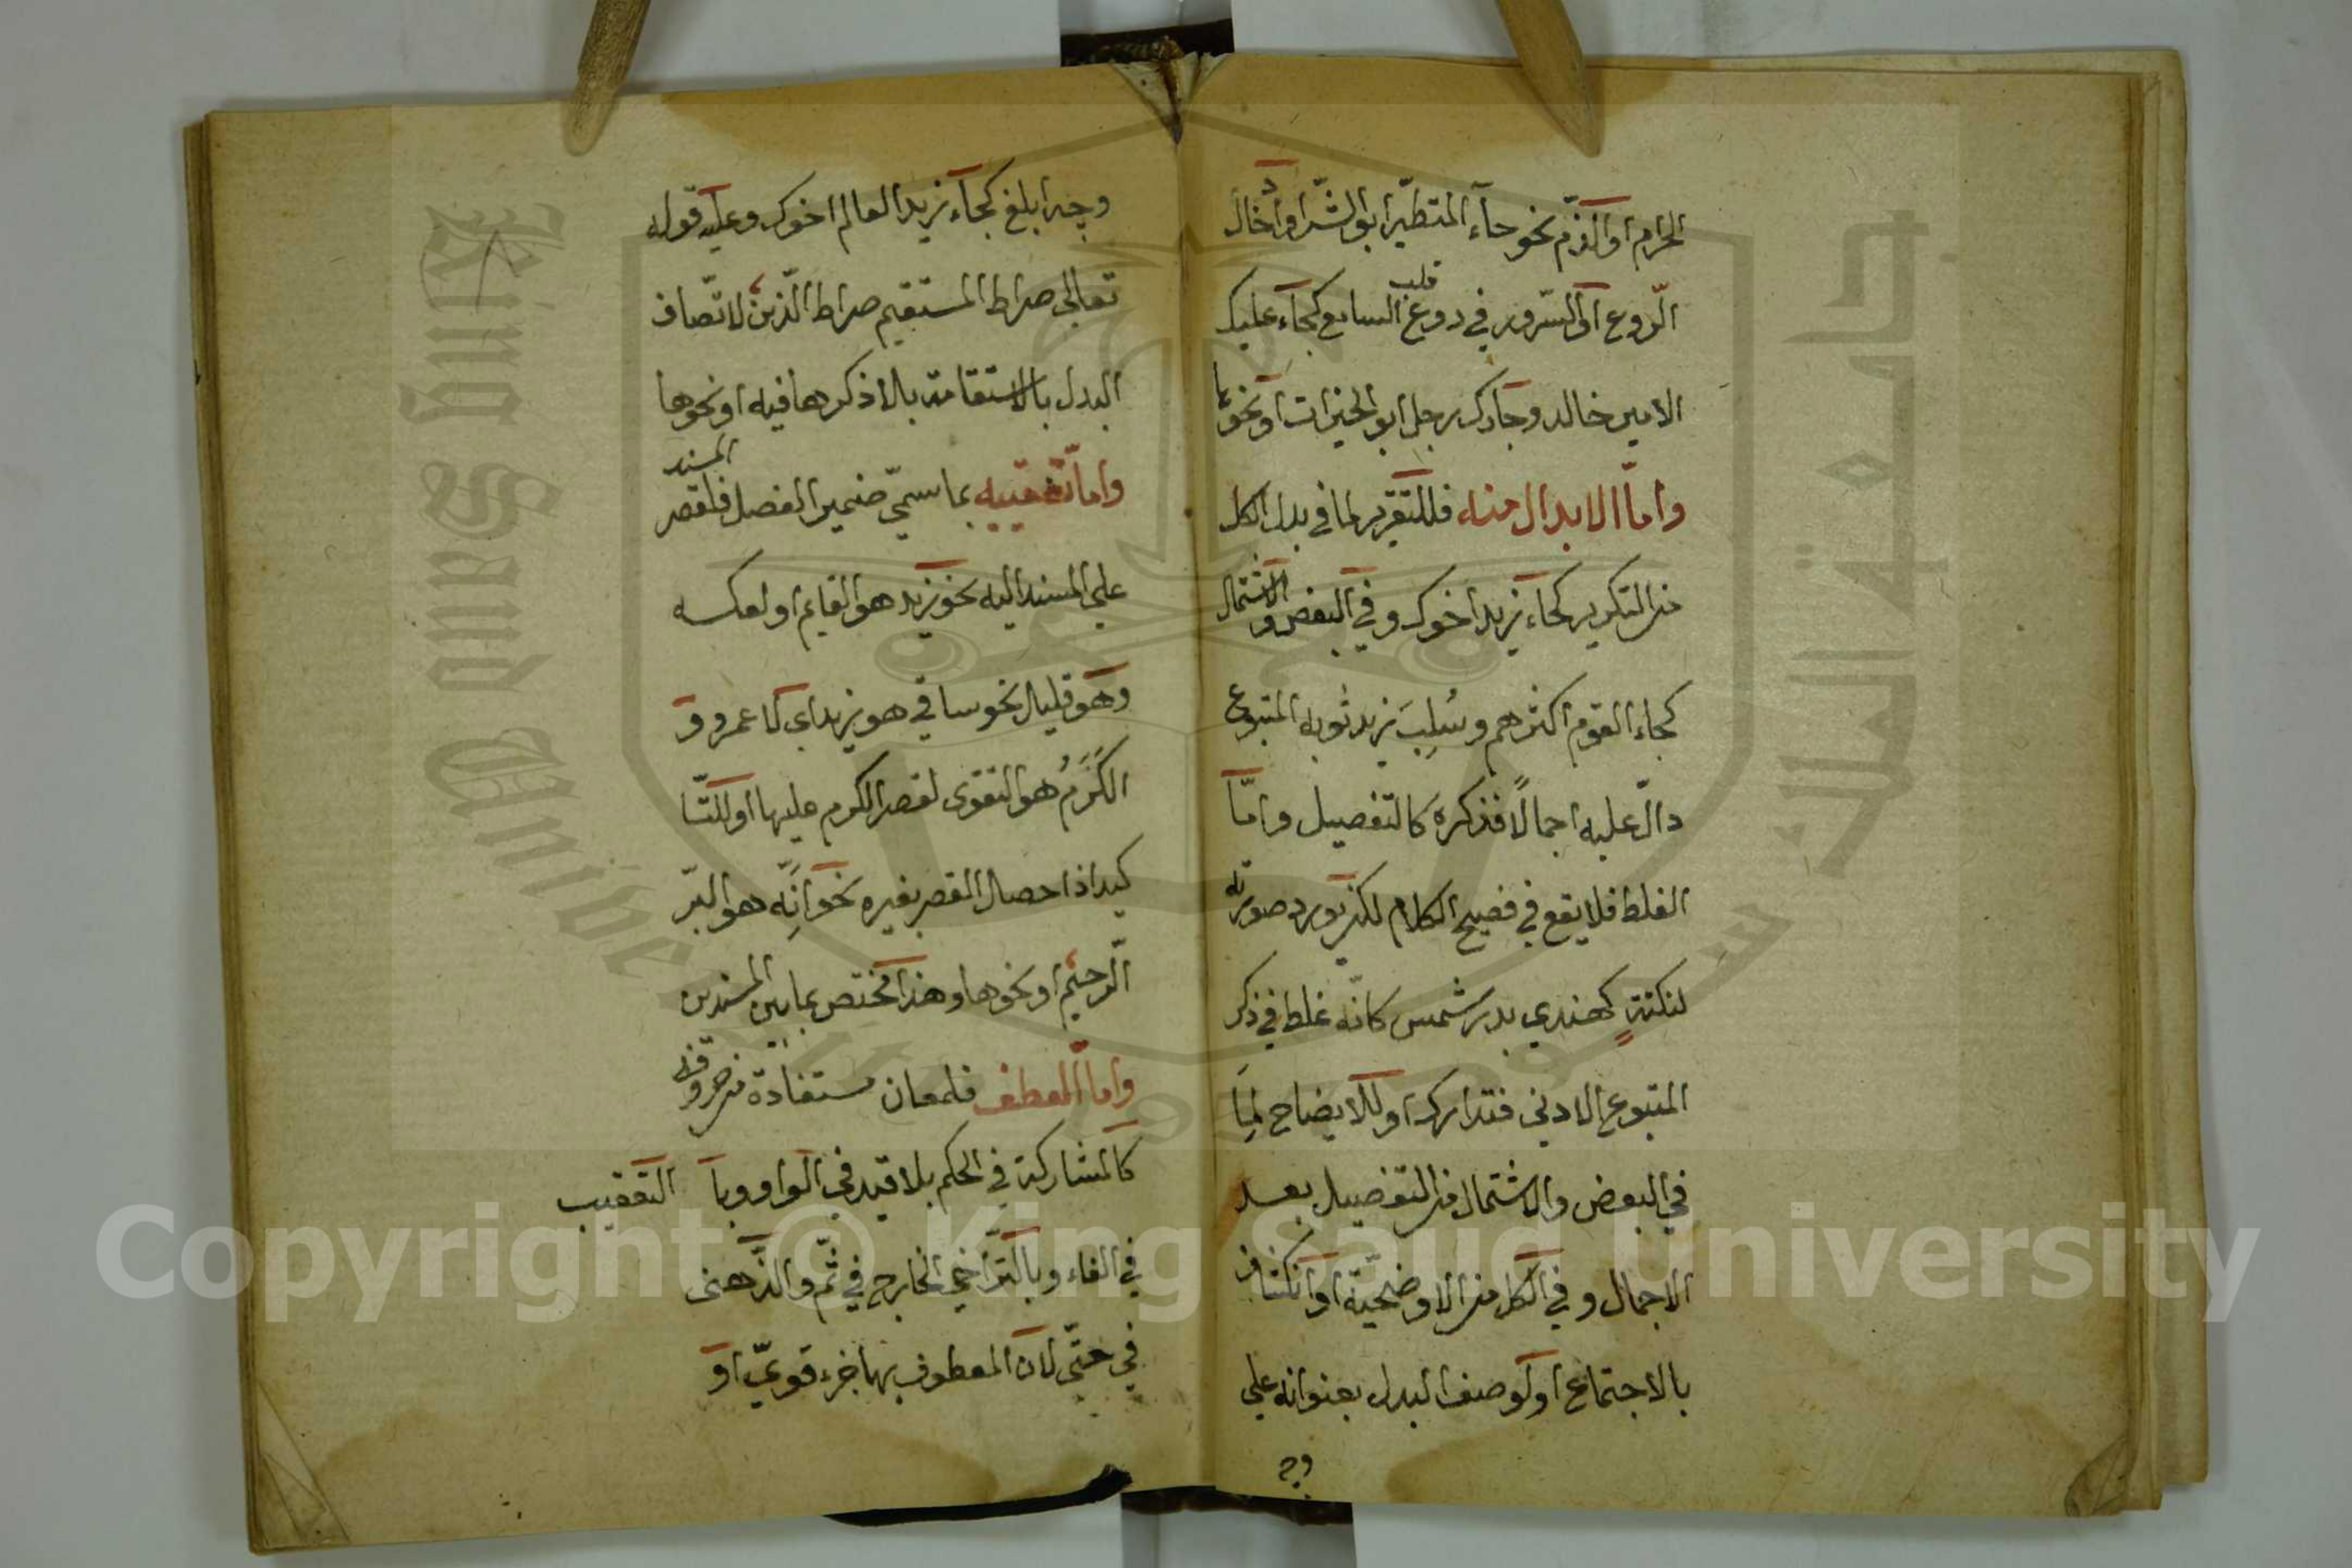 الحرام او الذم نحو جاء المتطير ابو الشر او ادخال
الروع او السرور في روع قلب السامع كجاء عليك
الامير خالد وجاءك رجل ابو الخيرات او نحوها
واما الابدال منه فللتقرير لما في بدل الكل
من التكرير كجاء زيد اخوك وفي البعض والاشتمال
كجاء القوم اكثرهم وسُلِبَ زيد ثوبه المتبوع
دالّ عليه اجمالًا فذكره كالتفصيل وامّا
الغلط فلا يقع في فصيح الكلام لكن يورد صورته
لنكتةٍ كهندي بدر شمس كانّه غلط في ذكر
المتبوع الادنى فتداركه او للايضاح لما
في البعض والاشتمال من التفصيل بعد
الاجمال وفي الكل من الاوضحية او انكشاف
بالاجتماع او لوصف البدل بعنوانه علي
وجه ابلغ كجاء زيد العالم اخوك وعليه قوله
تعالى صراط المستقيم صراط الّذين لاتّصاف
البدل بالاستقامة بالاذكرها فيه او نحوها
وامّا تعقيبه بما سمّي ضمير الفصل فلقصر المسند
علي المسند اليه نحو زيد هو القايم او لعكسه
وهو قليل نحو ساقي هو زيد اي لا عمرو و
الكَرَمُ هو التقوى لقصر الكرم عليها او للتّا
كيد اذا حصل القصر بغيره نحو انّه هو البّر
الّرحيم او نحوها وهذا مختص بما بين المسندين
وامّا العطف فلمعان مستفادة من حروفه
كالمشاركة في الحكم بلا قيد في الواو وبا التعقيب
في الفاء وبالتّراخي الخارجي في ثمّ والذّهنى
في حتّى لان المعطوف بها جزء قويّ او
وجه
Copyright © King Saud University
King Saud University
جامعة الملك سعود